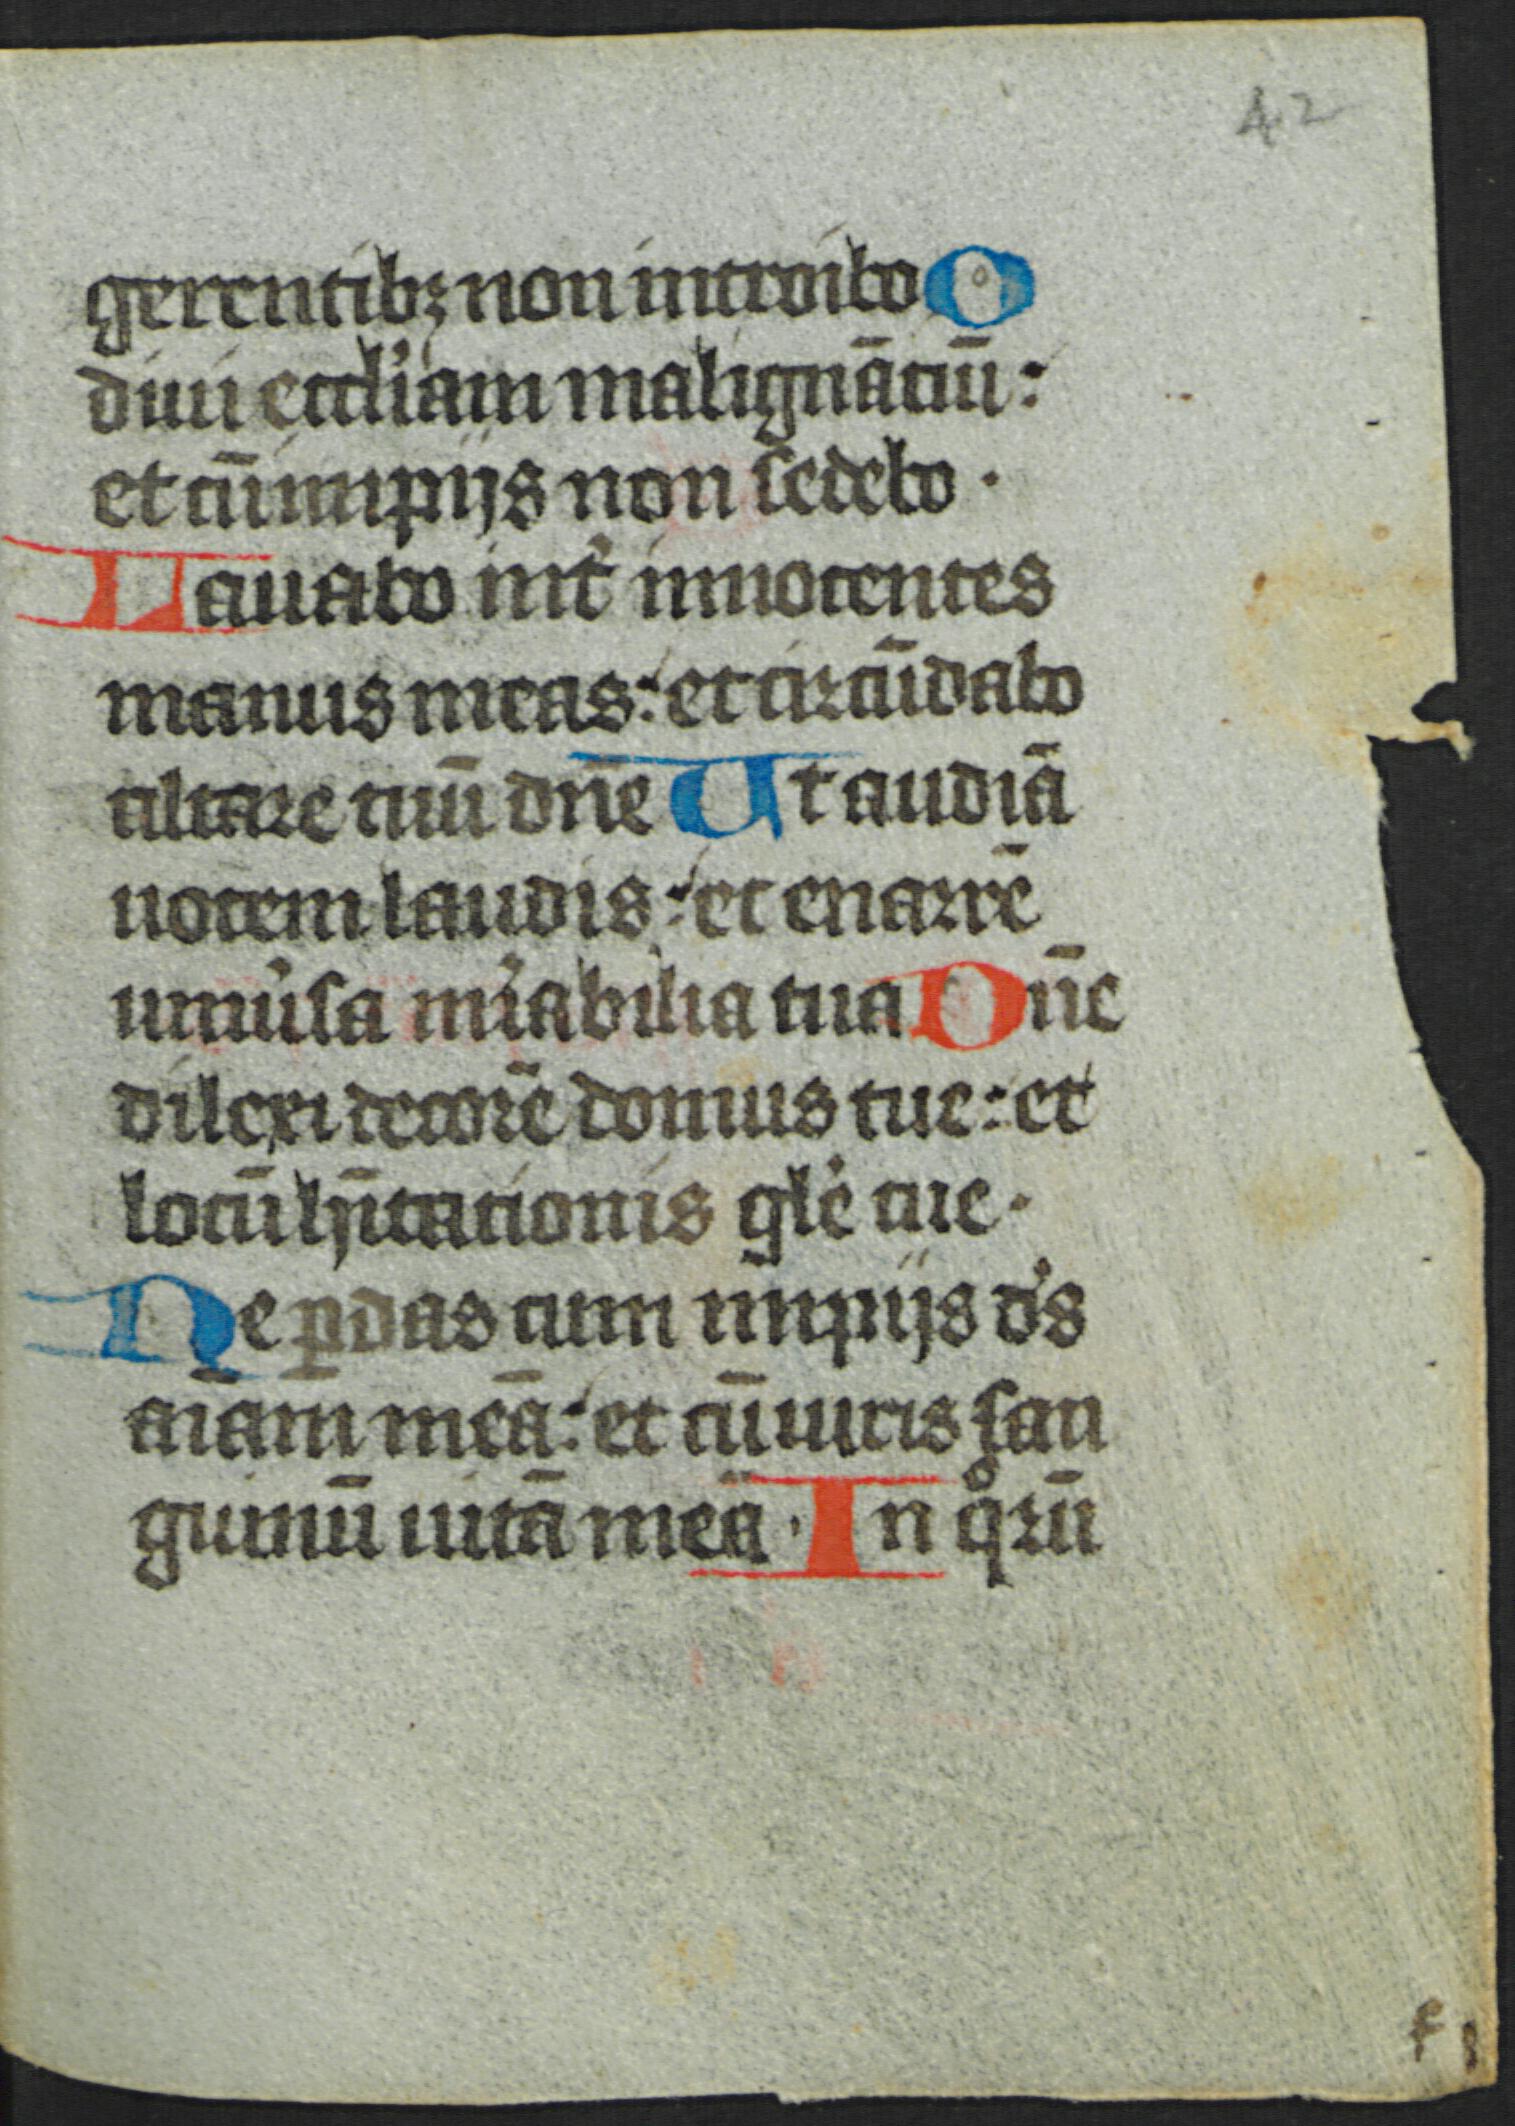 42
gerentibꝫ non introibo O
diui eccl'iam malignāciū :
et cū impijs non sedebo ·
Lauabo int᷑ innocentes
manus meas : et circūdabo
altare tuū dn̄e Ut audiā
uocem laudis : et enarrē
uniu'sa mi'abilia tua Dn̄e
dilexi decorē domus tue : et
locū hītationis gl'e tue ·
Ne ꝑdas cum impijs d's
aīam meā : et cū uiris san
guinū uitā meā · In qͦrū
f 1